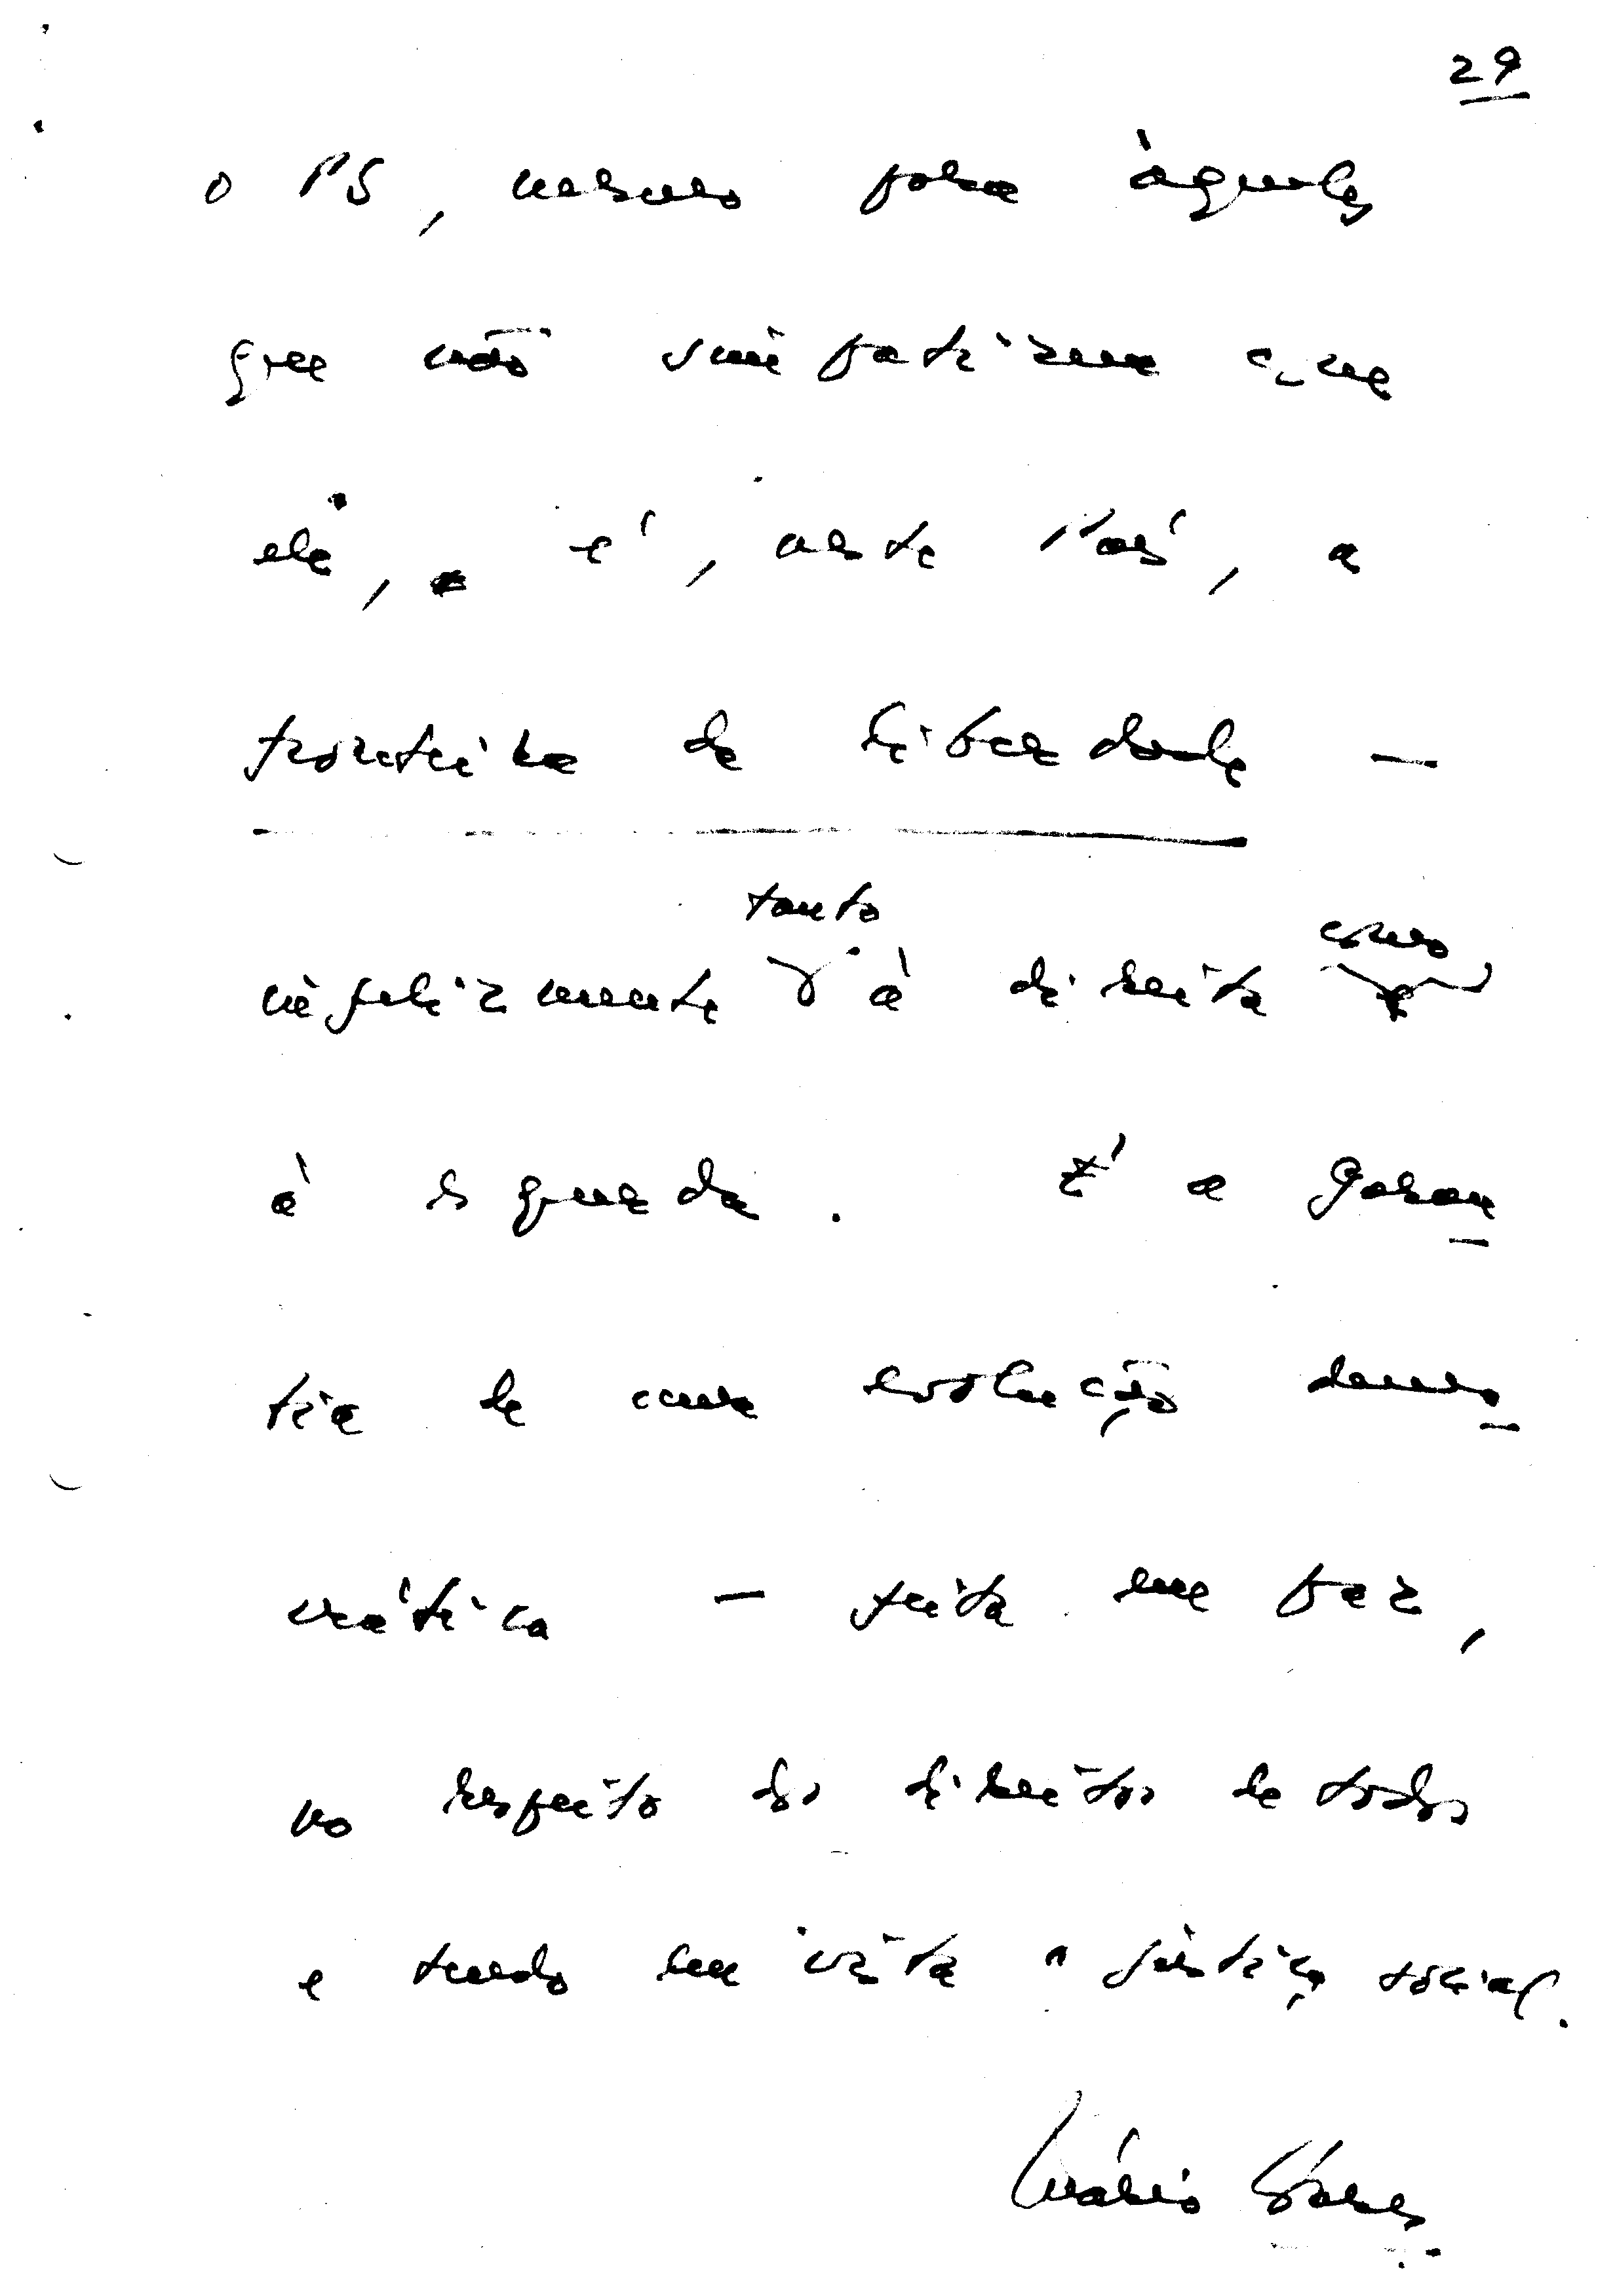 29
o PS, mesmo para àqueles
que não simpatizam com
ele, é, neste País, a
fronteira da liberdade —
tanto como
infelizmente à direita
à esquerda. É a garan
tia de uma evolução demo
crática — feita em paz,
no respeito dos direitos de todos
e tendo em vista a justiça social.
Mário Soares